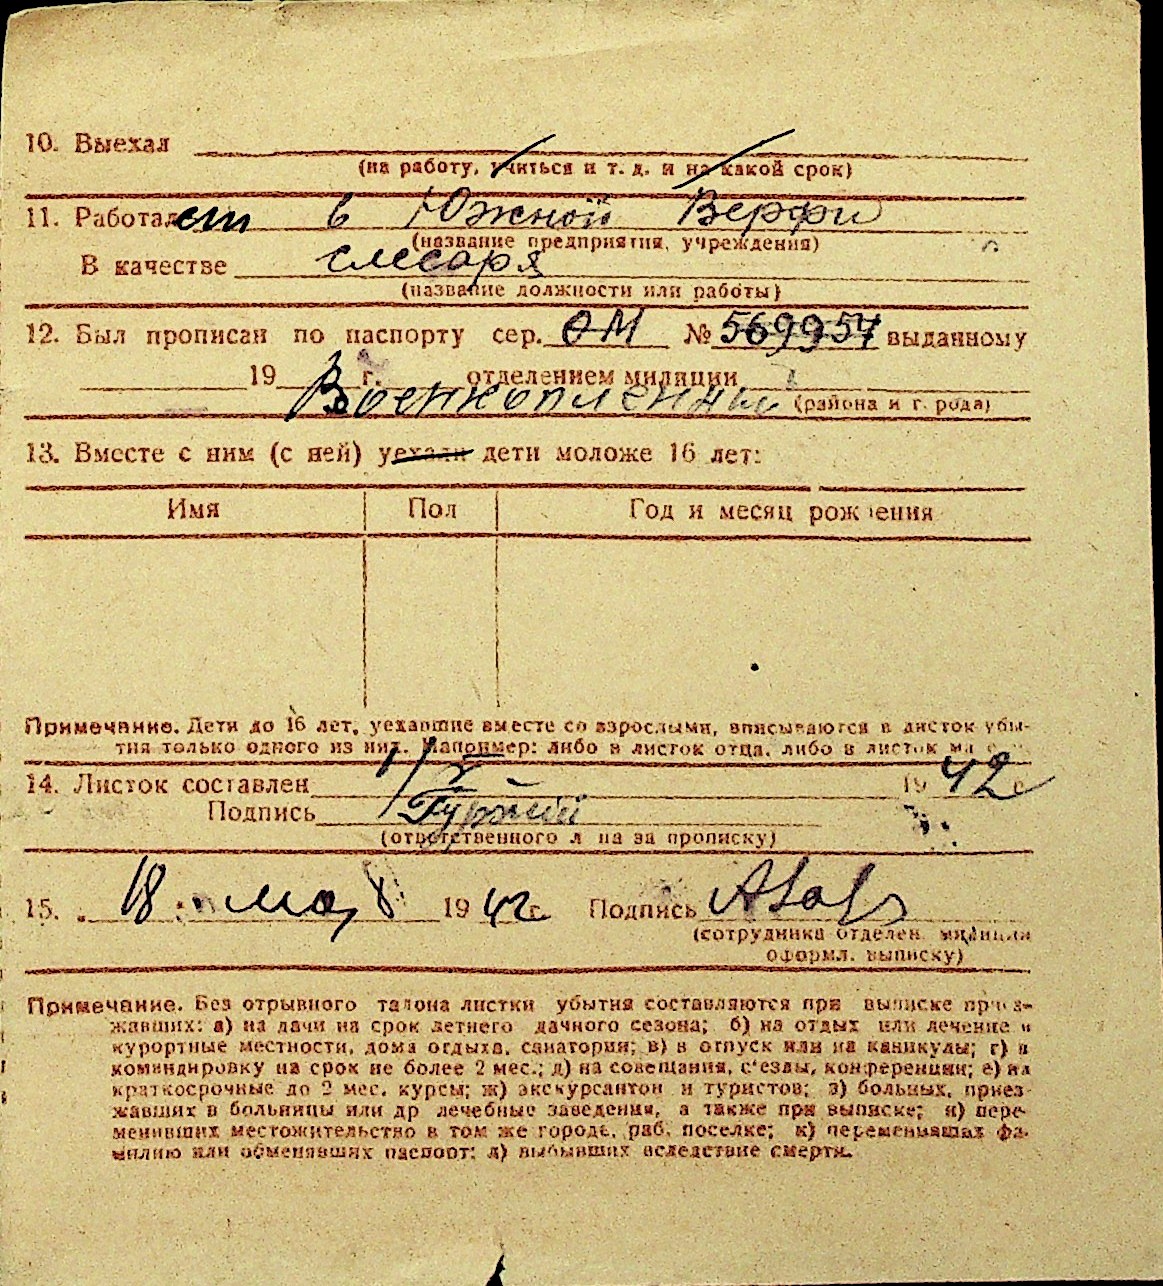 10. Выехал
(на работу, учиться и т. д. и на какой срок)
11. Работает в Южной Верфи
(название предприятия, учреждения)
В качестве слесаря
(название должности или работы)
12. Был прописан по паспорту сер. ОМ № 569957 выданному
19 г. отделением милиции
Военнопленный (района и города)
13. Вместе с ним (с ней) уехали дети моложе 16 лет:
Имя Пол Год и месяц рождения
Примечание. Дети до 16 лет, уехавшие вместе со взрослыми, вписываются в листок убы-
тия только одного из них. Например: либо в листок отца, либо в листок
14. Листок составлен 1942 г
Подпись
(ответственного лица за прописку)
15. 18 мая 1942 г. Подпись
(сотрудника отделен. милиции
оформл. выписку)
Примечание. Без отрывного талона листки убытия составляются при выписке приез-
жавших: а) на дачи на срок летнего дачного сезона; б) на отдых или лечение в
курортные местности, дома отдыха, санатории; в) в отпуск или на каникулы; г) в
командировку на срок не более 2 мес.; д) на совещания, с'езды, конференции; е) на
краткосрочные до 2 мес. курсы; ж) экскурсантов и туристов; з) больных, приез-
жавших в больницы или др лечебные заведения, а также при выписке; и) пере-
менивших местожительство в том же городе, раб. поселке; к) переменивших фа-
милию или обменявших паспорт; л) выбывших вследствие смерти.